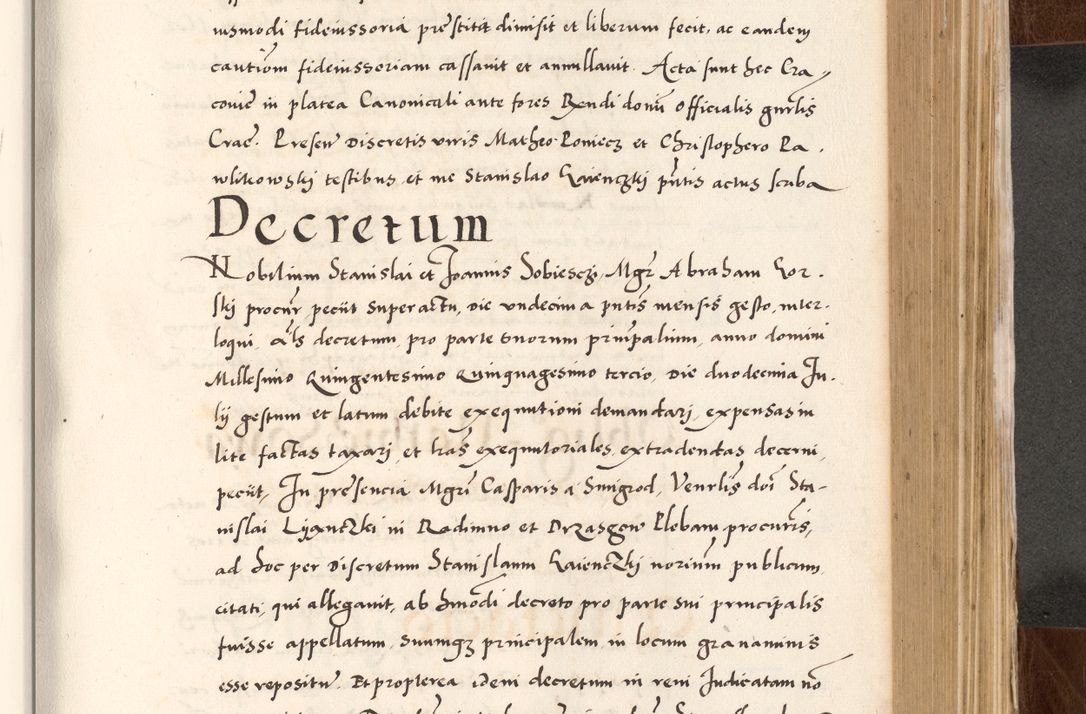 iusmodi fideiussoria prestita dimisit et liberum fecit, ac eandem
cautiom fideiussoriam cassauit et annullauit. Acta sunt hec Cra,
couie in platea Canonicali ante fores Rendi domi officialis gnrlis
Crac. Presen Discretis viris Matheo Poniecz et Christophero Pa.
wlikowski testibus et me Stanislao Kaienczki pntis actus scriba
Decretum
Nobilium Stanislai et Joannis Sobieszi, Mgr Abraham Kor.
ski procur peciit super actu, die undecima pntis mensis gesto, inter.
loqui, als decretum, pro parte suorum prinpalium, anno domini
Millesimo Quingentesimo Quinquagesimo tercio, die duodecima Ju.
lij gestum et latum debite exequutioni demandari, expensas in
lite factas taxari, et lras exequutoriales extradendas decerni,
peciit, In presencia Mgri Casparis a Smigrod, Venrlis doi Sta-
nislai in Radimno et Drzasgow Plebani procuris,
ad hoc per Discretum Stanislaum Kaienczki norium publicum
citati, qui allegauit, ab hmodi decreto pro parte sui principalis
fuisse appellatum, suumqz principalem, in locum grauaminis
esse repositu. Et propterea idem decretum in rem Judicatam no